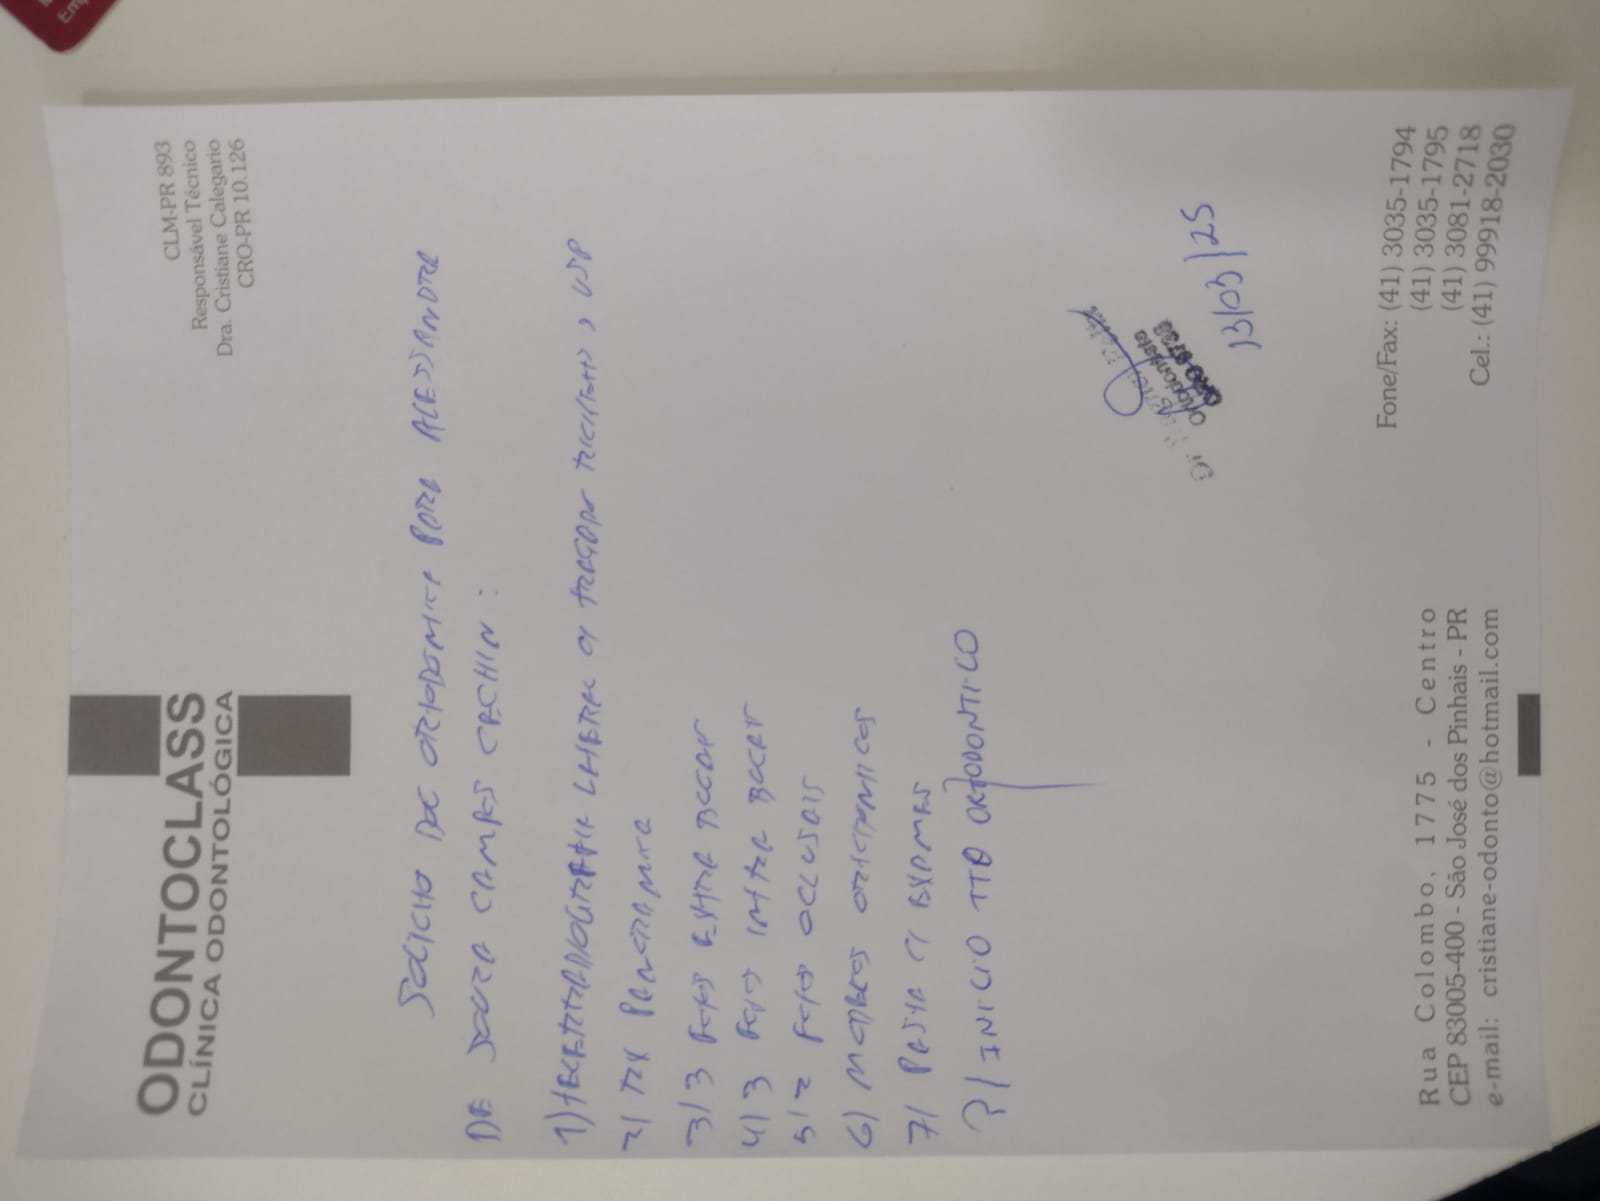 ODONTOCLASS
CLÍNICA ODONTOLÓGICA
CLM-PR 893
Responsável Técnico
Dra. Cristiane Calegario
CRO-PR 10.126
SOLICITO DOC ORTODONTICA PARA ALESSANDRA
DE SOUZA CAMPOS CECHIN :
1) TELERRADIOGRAFIA LATERAL C/ TRAÇADO , USP
2) RX PANORAMICA
3) 3 FOTOS EXTRA BUCAIS
4) 3 FOTOS INTRA BUCAIS
5) 2 FOTOS OCLUSAIS
6) MODELOS ORTODONTICOS
7) PASTA C/ EXAMES
P/ INICIO TTO ORTODONTICO
Ortodontista
13/03/25
Rua Colombo, 1775 - Centro
CEP 83005-400 - São José dos Pinhais - PR
e-mail: cristiane-odonto@hotmail.com
Fone/Fax: (41) 3035-1794
(41) 3035-1795
(41) 3081-2718
Cel.: (41) 99918-2030